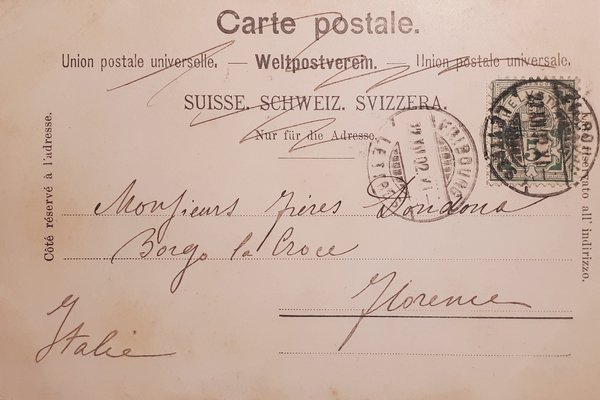 Carte postale.
Union postale universelle. — Weltpostverein. — Union postale universale.
SUISSE. SCHWEIZ. SVIZZERA.
Nur für die Adresse.
Côté réservé à l'adresse.
HELVETIA
FRIBOURG
LETTRES
Monsieurs frères Dondona
Borgo la Croce
Florence
Italie
riservato all' indirizzo.